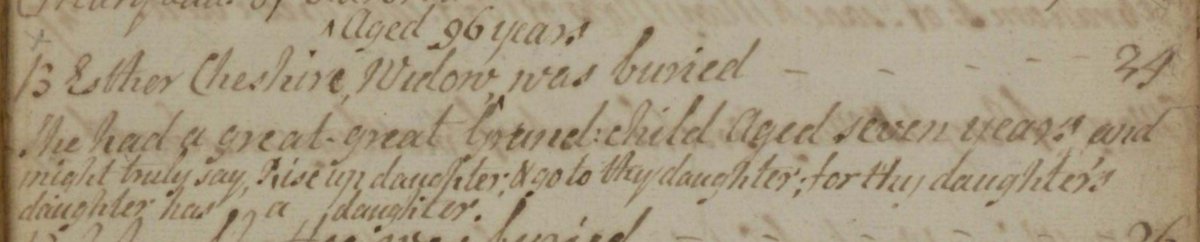 Aged 96 years
13 Esther Cheshire, Widow, was buried - - - - - 24
She had a great-great Grand:child Aged seven years, and
might truly say, Rise up daughter, & go to thy daughter; for thy daughter's
daughter has a daughter.
was buried - - - - 26